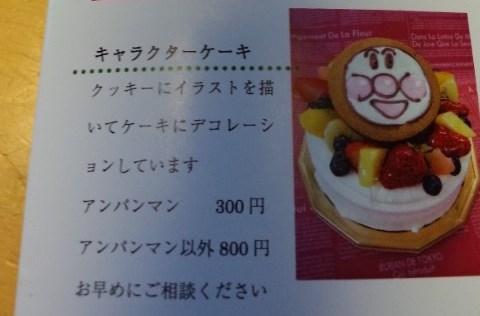 キャラクターケーキ
クッキーにイラストを描
いてケーキにデコレーシ
ョンしています
アンパンマン 300円
アンパンマン以外800円
お早めにご相談ください
De La Fleur